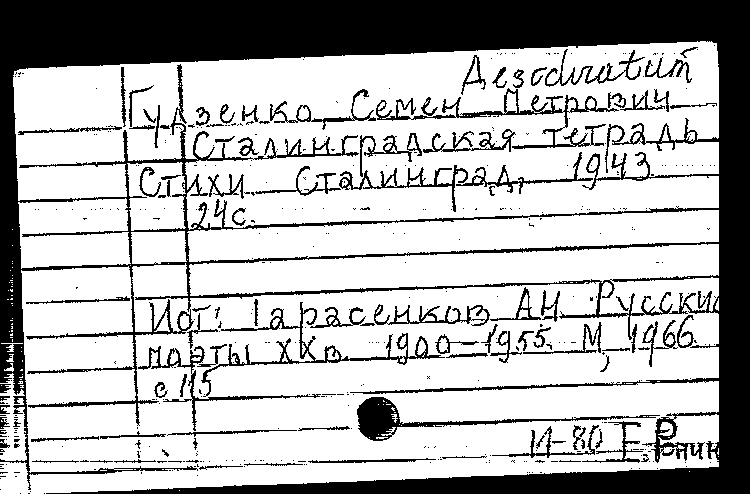 Дезоdiratum
Гудзенко, Семен Петрович
Сталинградская тетрадь
Стихи Сталинград, 1943
24с.
Ист: Тарасенков АН. Русские
поэты XX в 1900-1955. М, 1966
с 115
14-80 Е. Ронин